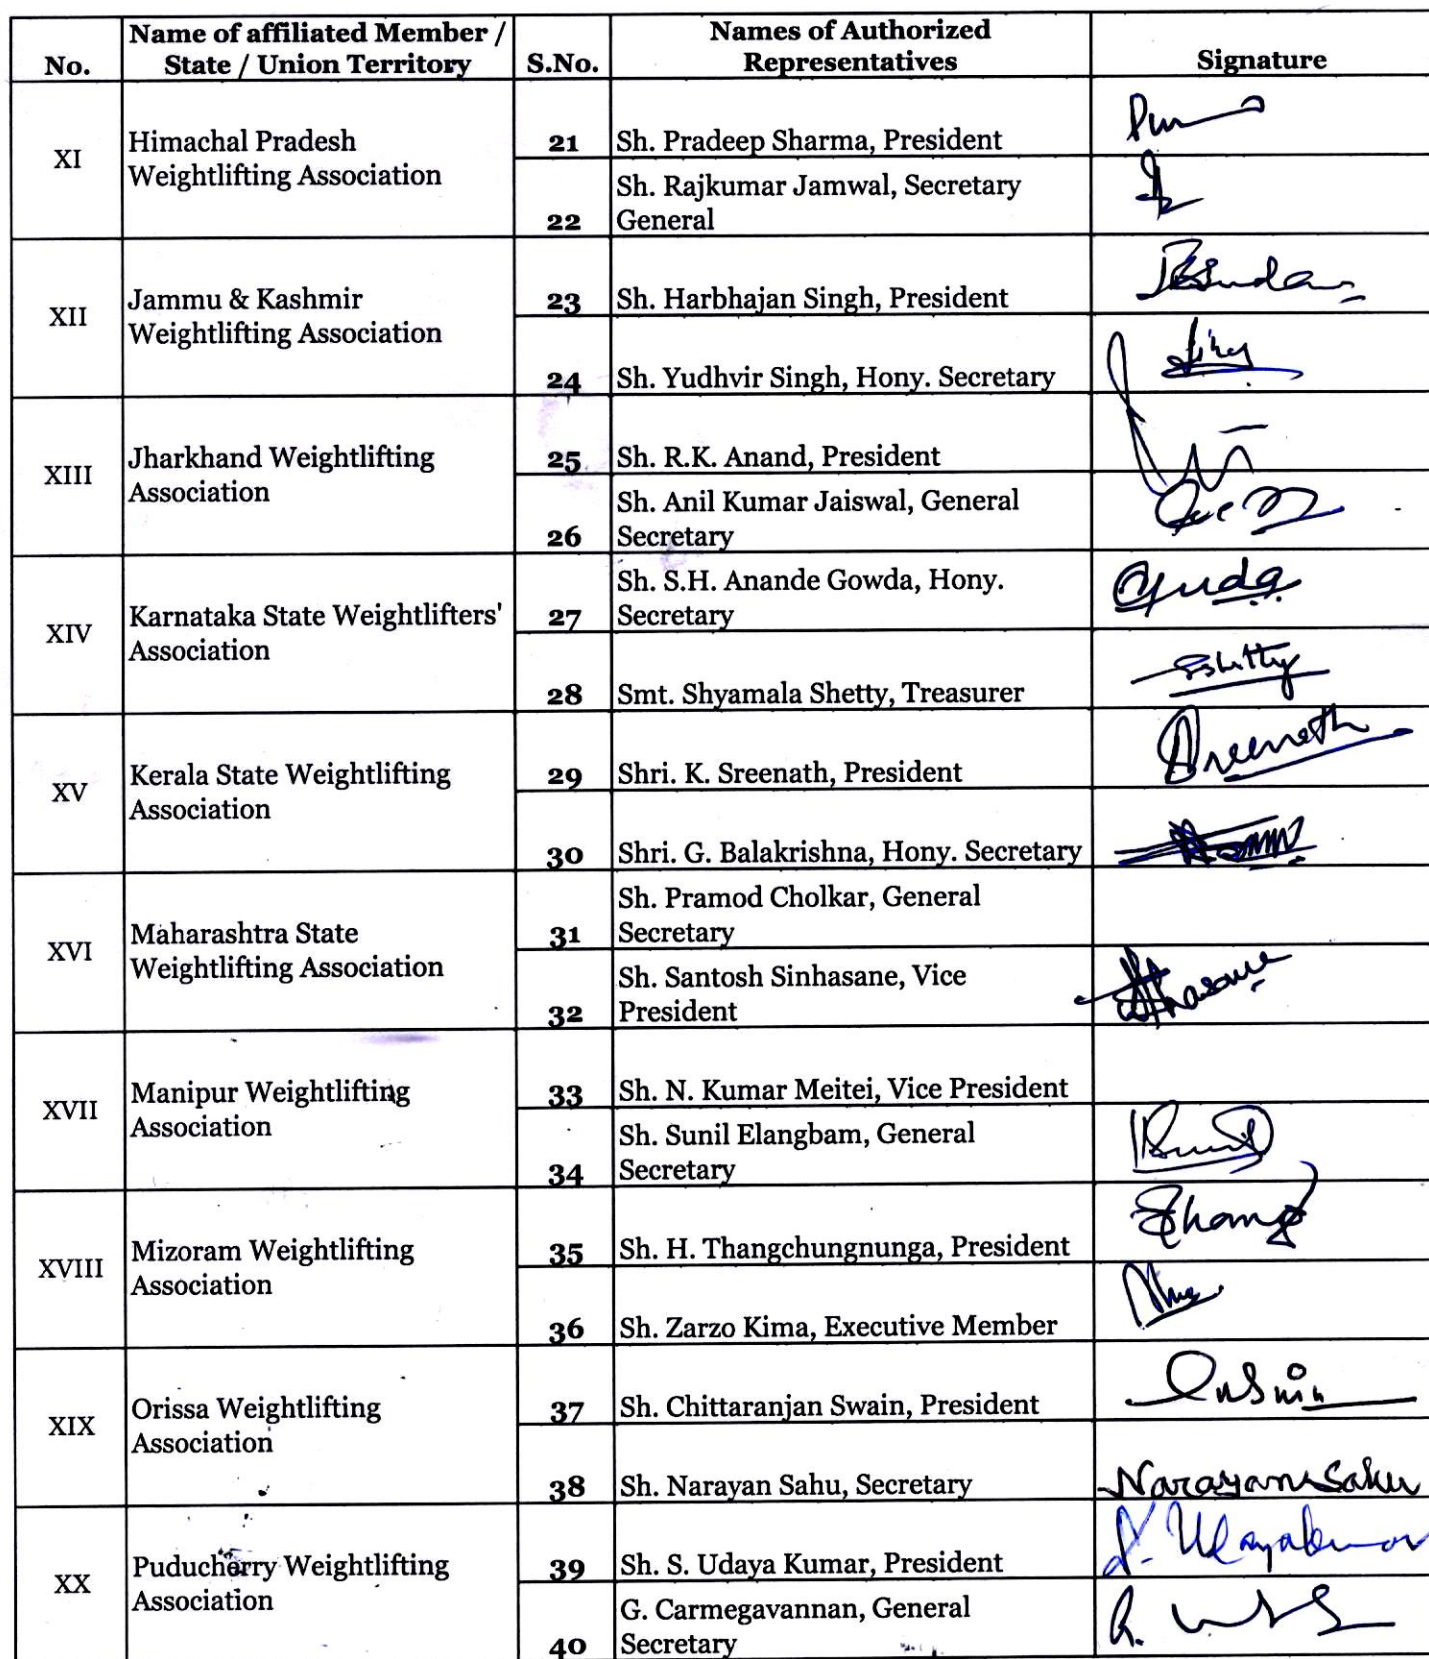 Name of affiliated Member /
State / Union Territory
Names of Authorized
Representatives
No.
S.No.
Signature
XI
Himachal Pradesh
Weightlifting Association
21
Sh. Pradeep Sharma, President
22
Sh. Rajkumar Jamwal, Secretary
General
XII
Jammu & Kashmir
Weightlifting Association
23
Sh. Harbhajan Singh, President
24
Sh. Yudhvir Singh, Hony. Secretary
XIII
Jharkhand Weightlifting
Association
25
Sh. R.K. Anand, President
26
Sh. Anil Kumar Jaiswal, General
Secretary
XIV
Karnataka State Weightlifters'
Association
27
Sh. S.H. Anande Gowda, Hony.
Secretary
28
Smt. Shyamala Shetty, Treasurer
SShetty
XV
Kerala State Weightlifting
Association
29
Shri. K. Sreenath, President
Sreenath
30
Shri. G. Balakrishna, Hony. Secretary
XVI
Maharashtra State
Weightlifting Association
31
Sh. Pramod Cholkar, General
Secretary
32
Sh. Santosh Sinhasane, Vice
President
XVII
Manipur Weightlifting
Association
33
Sh. N. Kumar Meitei, Vice President
34
Sh. Sunil Elangbam, General
Secretary
XVIII
Mizoram Weightlifting
Association
35
Sh. H. Thangchungnunga, President
36
Sh. Zarzo Kima, Executive Member
XIX
Orissa Weightlifting
Association
37
Sh. Chittaranjan Swain, President
38
Sh. Narayan Sahu, Secretary
Narayan Sahu
XX
Puducherry Weightlifting
Association
39
Sh. S. Udaya Kumar, President
S. Udayakumar
40
G. Carmegavannan, General
Secretary